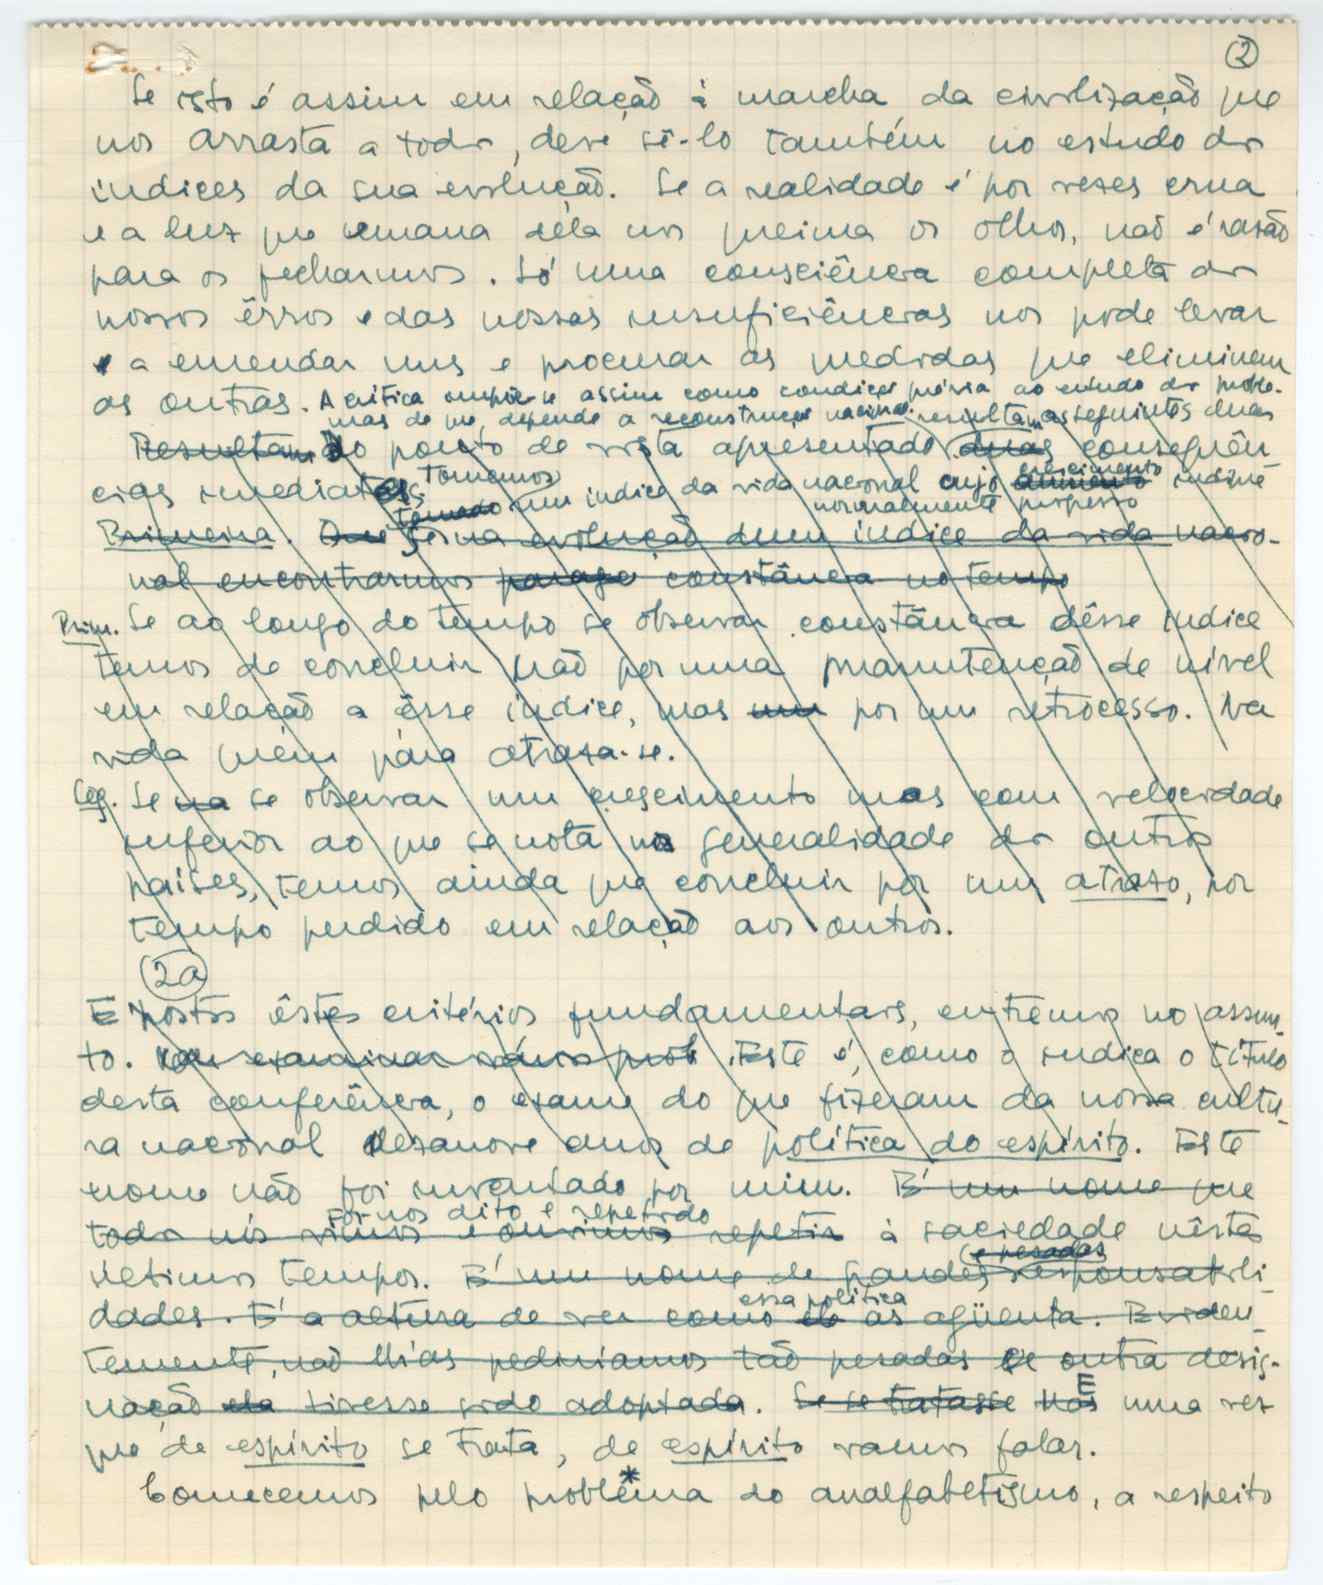 2
Se isto é assim em relação à marcha da civilização que
nos arrasta a todos, deve sê-lo também no estudo dos
indices da sua evolução. Se a realidade é por vezes crua
e a luz que emana dela nos queima os olhos, não é razão
para os fecharmos. Só uma consciência completa dos
nossos êrros e das nossas insuficiências nos pode levar
a emendar uns e procurar as medidas que eliminem
as outras. A crítica impõe-se assim como condição prévia ao estudo dos proble-
mas de que depende a reconstrução nacional. resultam as seguintes duas
Resultam Do ponto de vista apresentado duas consequên
cias imediatas: Tomemos
tomado um indice da vida nacional cujo aumento crescimento indique
normalmente progresso
Primeira. Que se na evolução dum indice da vida nacio-
nal encontrarmos constância no tempo
Prim. Se ao longo do tempo se observar constância dêsse indice
temos de concluir não por uma manutenção de nível
em relação a êsse indice, mas um por um retrocesso. Na
vida quem pára atrasa-se.
Seg. Se na se observar um crescimento mas com velocidade
inferior ao que se nota na generalidade dos outros
paises, temos ainda que concluir por um atraso, por
tempo perdido em relação aos outros.
2a
Expostos êstes critérios fundamentais, entremos no assun-
to. Vou examinar vários prob Este é, como o indica o título
desta conferência, o exame do que fizeram da nossa cultu-
ra nacional dezanove anos de política do espírito. Este
nome não foi inventado por mim. É um nome que
foi-nos dito e repetido
todos nós vimos e ouvimos repetir à saciedade nêstes
(e pesadas
últimos tempos. É um nome de grandes responsabili-
essa política
dades. É a altura de ver como ele as agüenta. Eviden-
temente, não lhias pediriamos tão pesadas se outra desig-
nação ela tivesse sido adoptada. Se se tratasse Mas E uma vez
que de espírito se trata, de espírito vamos falar.
Comecemos pelo problema * do analfabetismo, a respeito